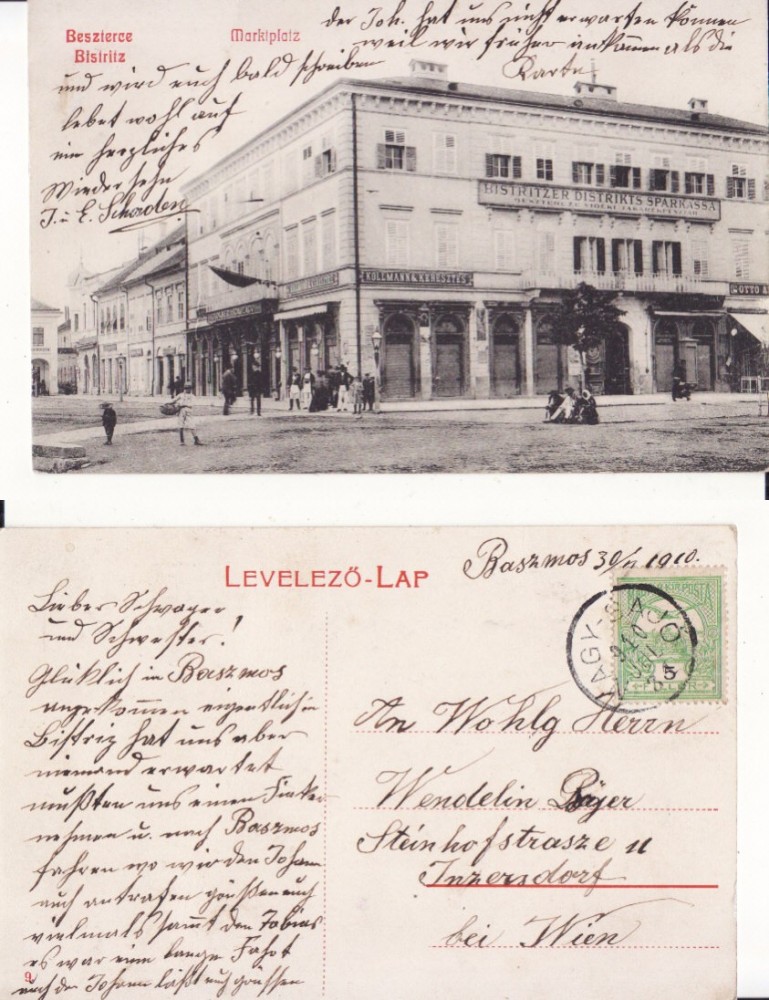 Beszterce
Bistritz
Marktplatz
der Joh. hat uns nicht erwarten können
weil wir früher ankommen als die
Karte
und wird euch bald schreiben
lebet wohl auf
ein herzliches
Wiedersehn
J. u E.
BISTRITZER DISTRIKTS SPARKASSA
KOLLMANN & KERESZTES
OTTO
LEVELEZŐ-LAP
Baszmos 30/ 1910.
Lieber Schwager
und Schwester!
Glücklich in Baszmos
angekommen eigentlich in
Bistriz hat uns aber
niemand erwartet
mußten uns einen Fiaker
nehmen u. nach Baszmos
fahren wo wir den Johann
auch antrafen grüßen euch
vielmals sammt den Tobias
es war eine lange Fahrt
auch der Johann läßt euch grüssen
9
NAGY-SAJÓ
910
An Wohlg Herrn
Wendelin
Steinhofstrasze 11
Inzersdorf
bei Wien